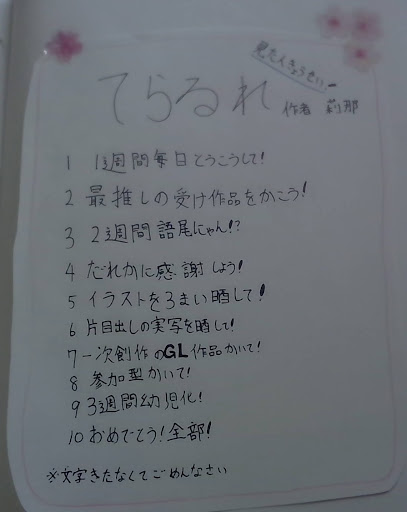 見た人きょうせい!
てられるれ
作者 莉那
1 1週間毎日とうこうして!
2 最推しの受け作品をかこう!
3 2週間語尾にゃん!?
4 だれかに感謝しよう!
5 イラストを3まい晒して!
6 片目出しの実写を晒して!
7 一次創作のGL作品かいて!
8 参加型かいて!
9 3週間幼児化!
10 おめでとう!全部!
※文字きたなくてごめんなさい